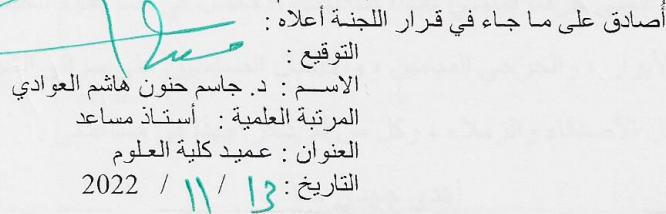 أصادق على ما جاء في قرار اللجنة أعلاه :
التوقيع :
الاســم : د. جاسم حنون هاشم العوادي
المرتبة العلمية : أستاذ مساعد
العنوان : عميد كلية العلوم
التاريخ : 13 / 11 / 2022